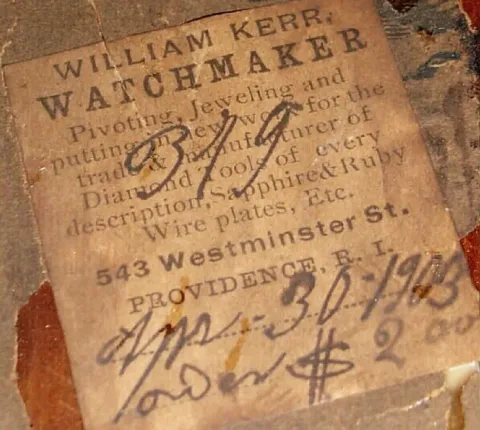 WILLIAM KERR,
WATCHMAKER
Pivoting, Jeweling and
putting in new work for the
trade & manufacturer of
Diamond Tools of every
description, Sapphire & Ruby
Wire plates, Etc.
319
543 Westminster St.
PROVIDENCE, R. I.
Apr - 30 - 1903
order $ 2 00